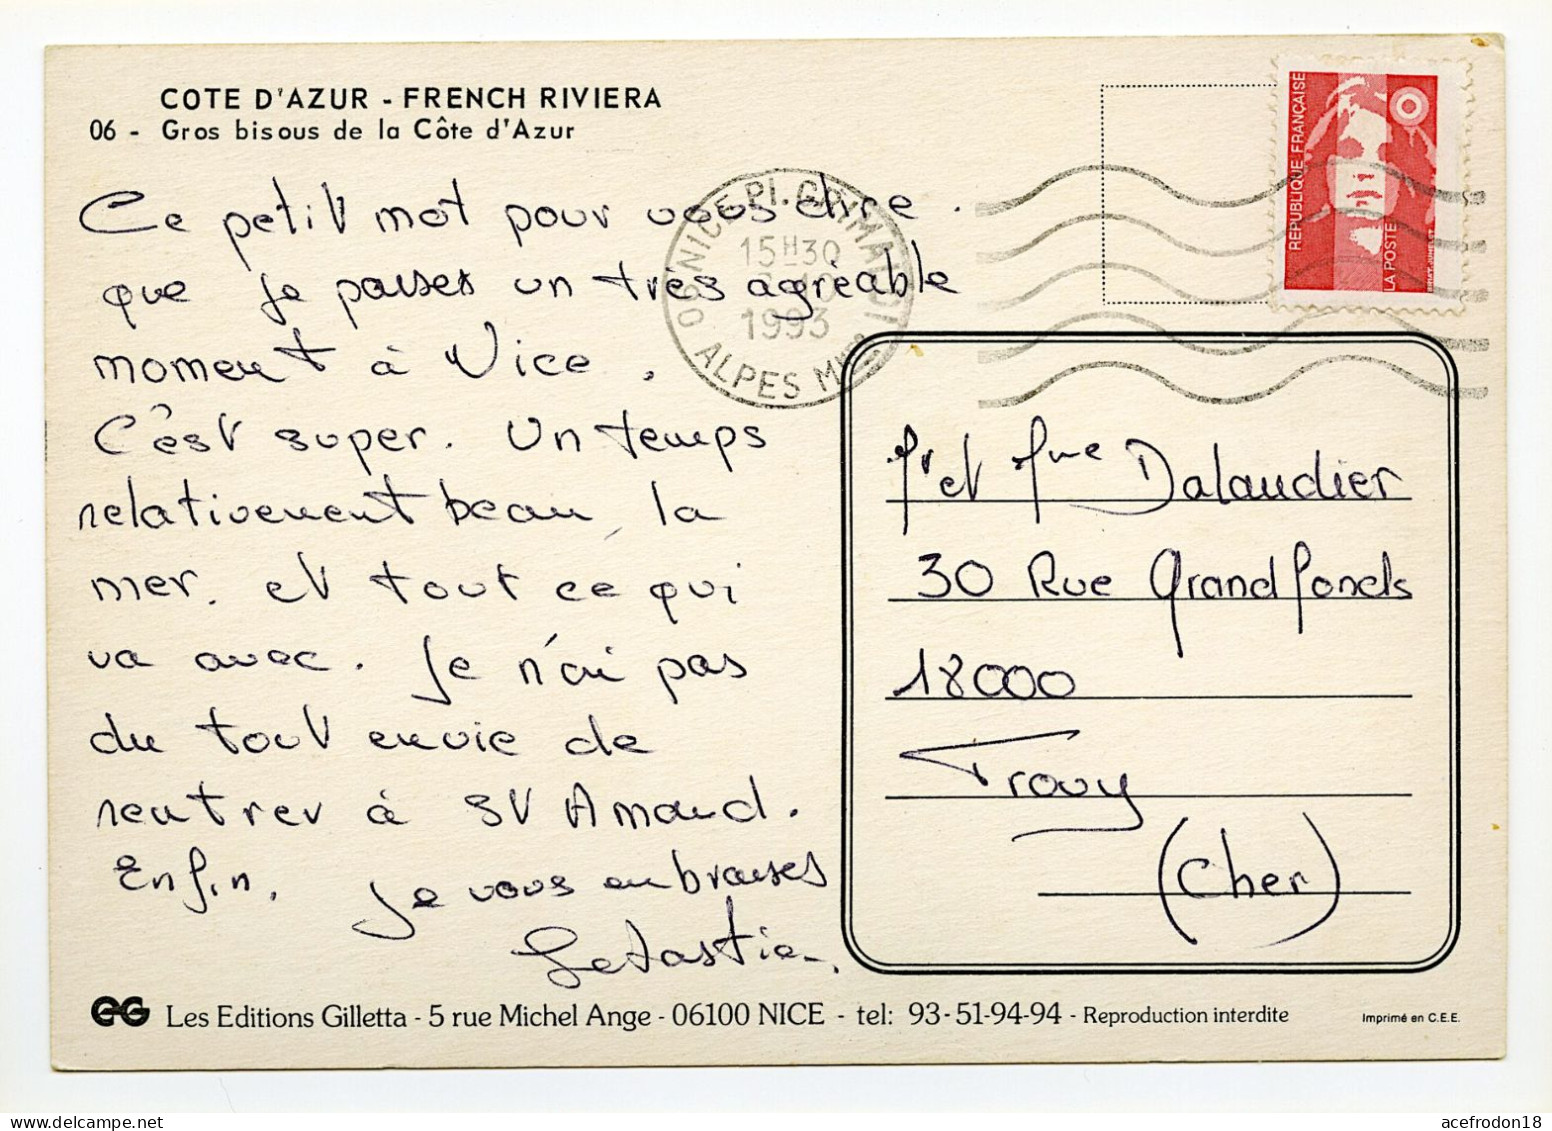 COTE D'AZUR - FRENCH RIVIERA
06 - Gros bisous de la Côte d'Azur
Ce petit mot pour vous dire.
que je passes un très agréable
moment à Nice.
C'est super. Un temps
relativement beau, la
mer, et tout ce qui
va avec. Je n'ai pas
du tout envie de
rentrer à St Amand.
Enfin. Je vous embrasses
Sebastien.
06 NICE PL. GRIMALDI
15H30
10
1993
ALPES MMES
REPUBLIQUE FRANÇAISE
LA POSTE
BRIAT. JUMELET
Mr et Mme Dalaudier
30 Rue Grandfonds
18000
Trouy
(Cher)
EG Les Editions Gilletta - 5 rue Michel Ange - 06100 NICE - tel: 93-51-94-94 - Reproduction interdite
Imprimé en C.E.E.
acefrodon18